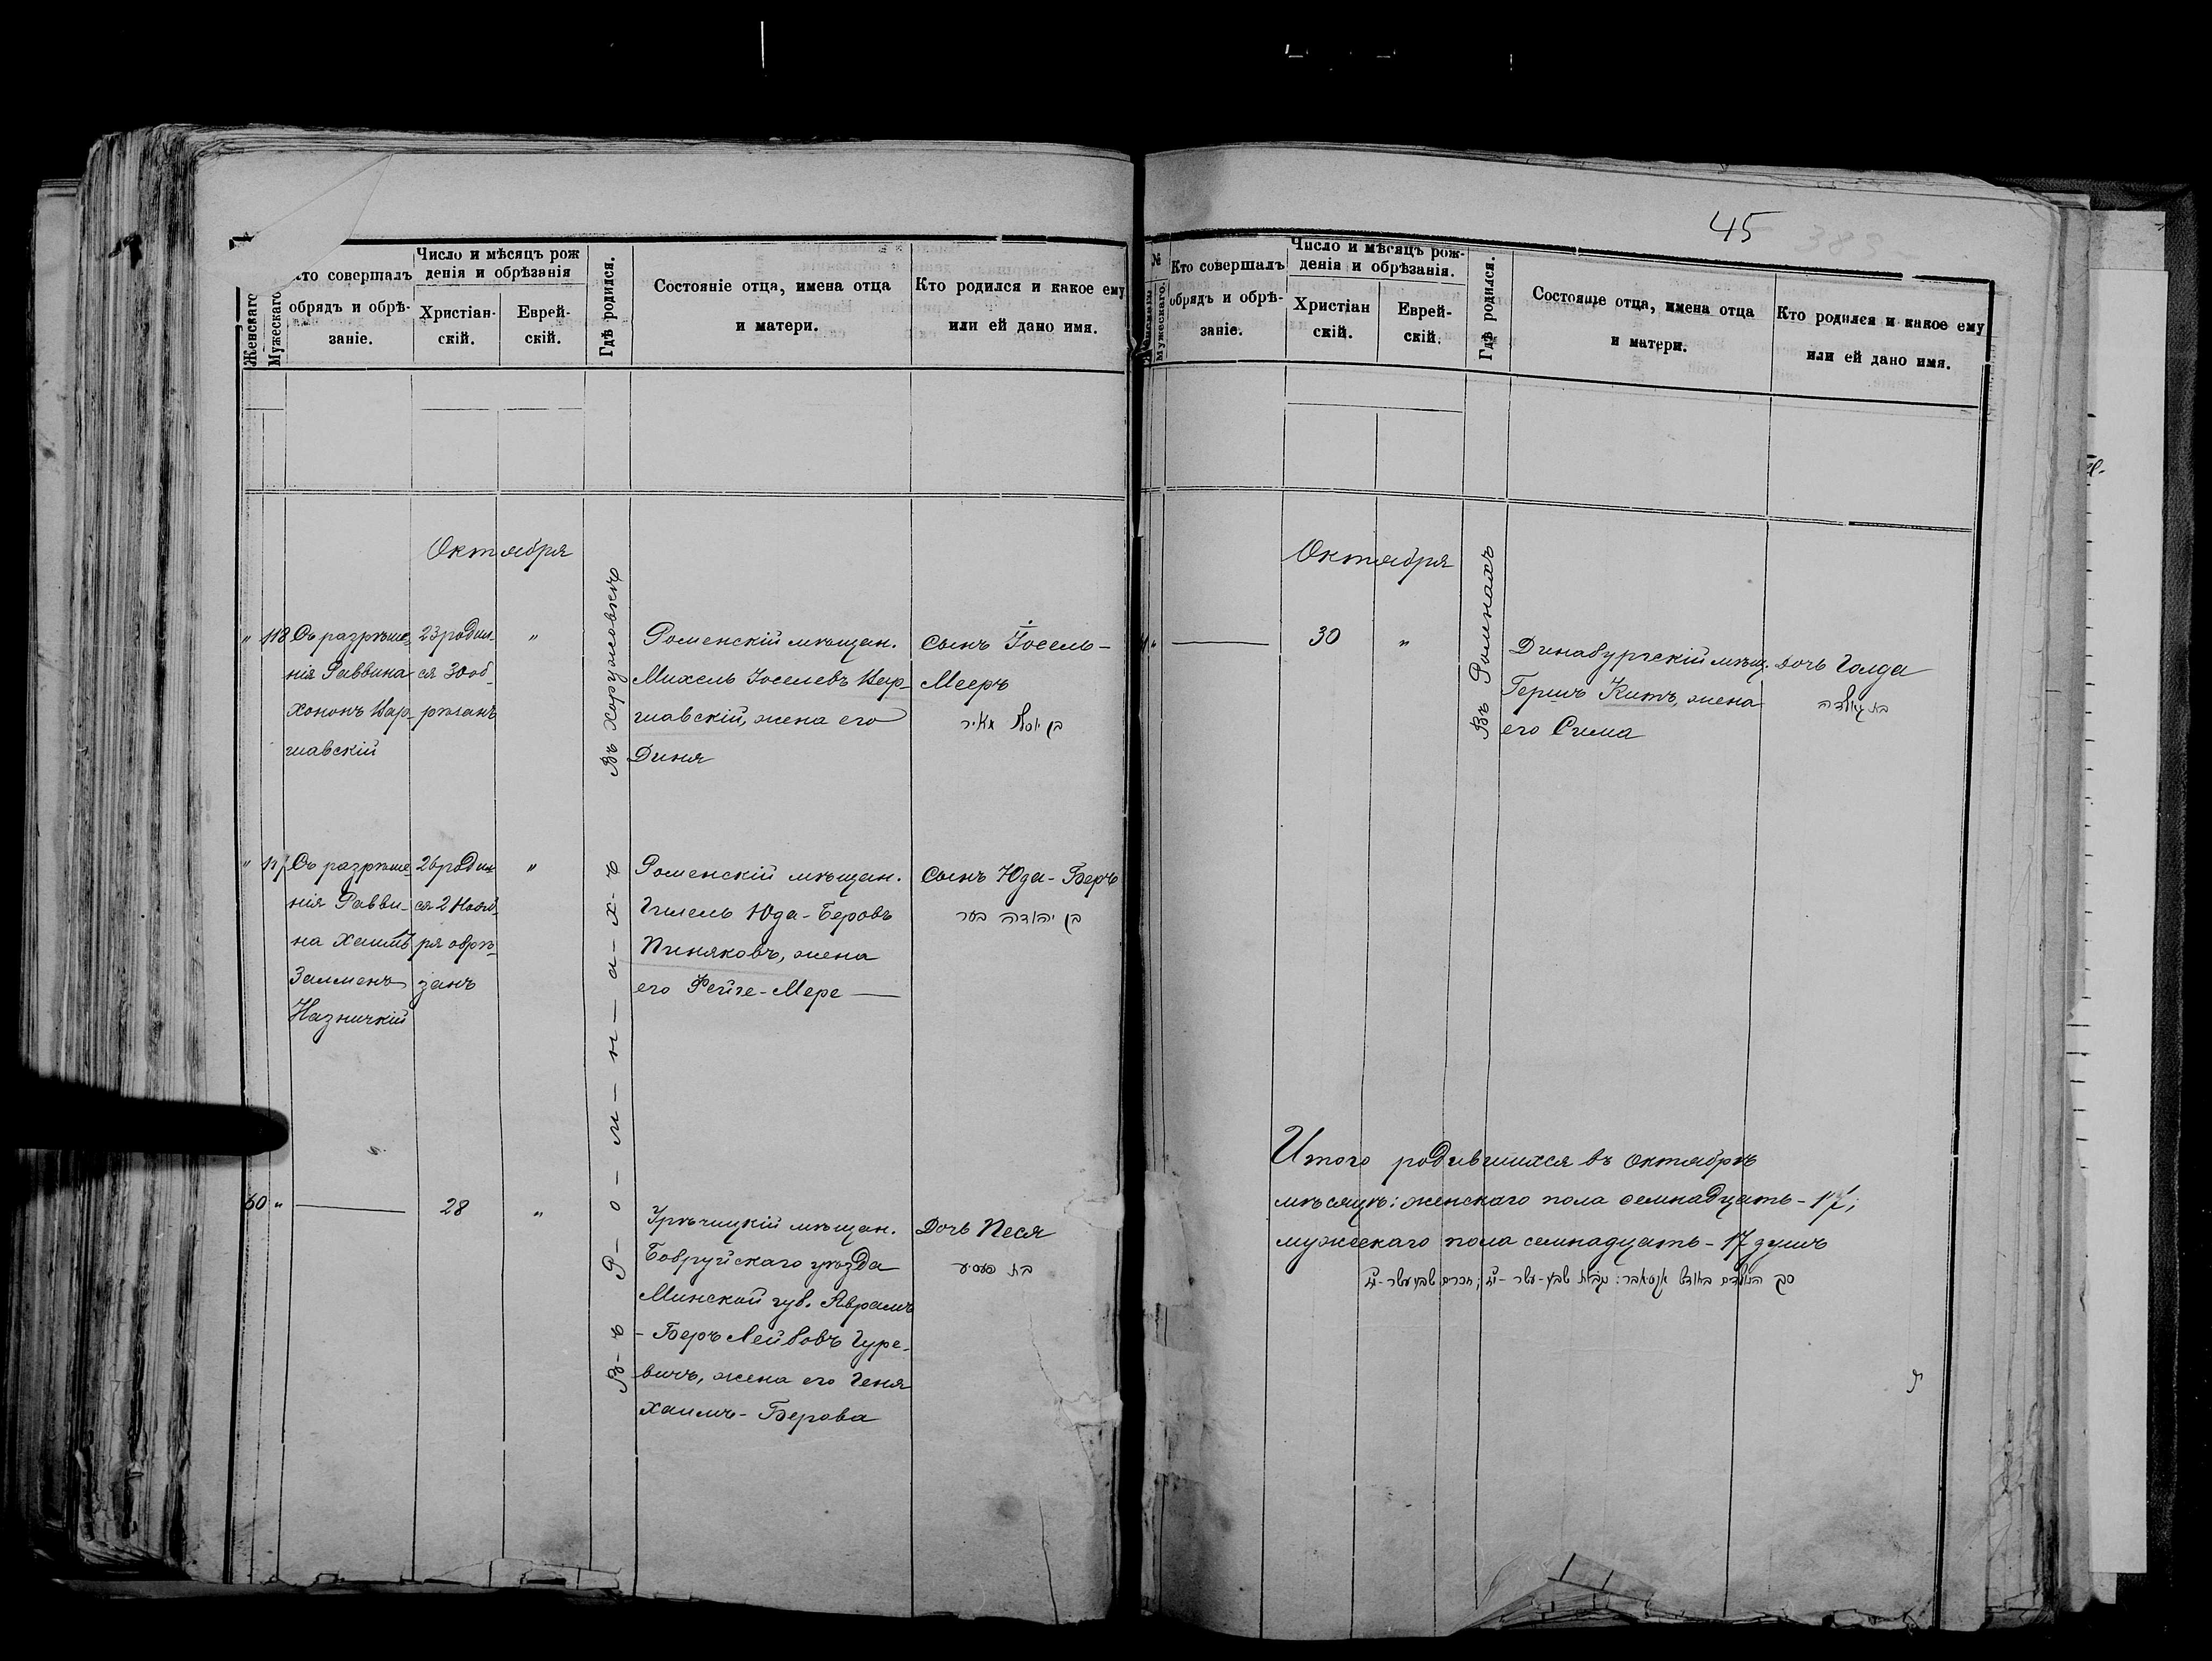 45
385
Женскаго
Мужескаго
Кто совершалъ
обрядъ и обрѣ-
заніе.
Число и мѣсяцъ рож
денія и обрѣзанія
Христіан-
скій.
Еврей-
скій.
Гдѣ родился.
Состояніе отца, имена отца
и матери.
Кто родился и какое ему
или ей дано имя.
Октября
" 118
Съ разрѣше-
нія Раввина
Хононъ Вар-
шавскій
23 родил-
ся 30 об-
рѣзанъ
"
Въ Хоружовкѣ
Роменскій мѣщан.
Михель Іоселевъ Вар-
шавскій, жена его
Диня
Сынъ Іосель-
Мееръ
בן יוסל מאיר
" 117
Съ разрѣше-
нія Равви-
на Хаимъ
Залменъ
26 родил-
ся 2 Нояб-
ря обрѣ-
занъ
"
В-ъ Р-о-м-н-а-х-ъ
Роменскій мѣщан.
Гилель Юда-Беровъ
Пиняковъ, жена
его Фейге-Мере
Сынъ Юда-Беръ
בן יהודה בער
60 "
28
"
мѣщан.
Бобруйскаго уѣзда
Минской губ. Аврамъ
-Беръ Лейбовъ Гуре-
вичъ, жена его Геня
Хаимъ-Берова
Дочь Песя
בת פעסיע
№
Женскаго
Мужескаго.
Кто совершалъ
обрядъ и обрѣ-
заніе.
Число и мѣсяцъ рож-
денія и обрѣзанія.
Христіан
скій.
Еврей-
скій.
Гдѣ родился.
Состояніе отца, имена отца
и матери.
Кто родился и какое ему
или ей дано имя.
Октября
30
"
Въ Ромнахъ
Динабургскій мѣщ.
Гершъ Китъ, жена
его Сима
Дочь Голда
בת גאלדה
Итого родившихся въ Октябрѣ
мѣсяцѣ: женскаго пола семнадцать - 17;
мужескаго пола семнадцать - 17 душъ
סך הנולדים בחודש אקטאבר: נקבות שבע-עשר -17; זכרים שבע עשר -17